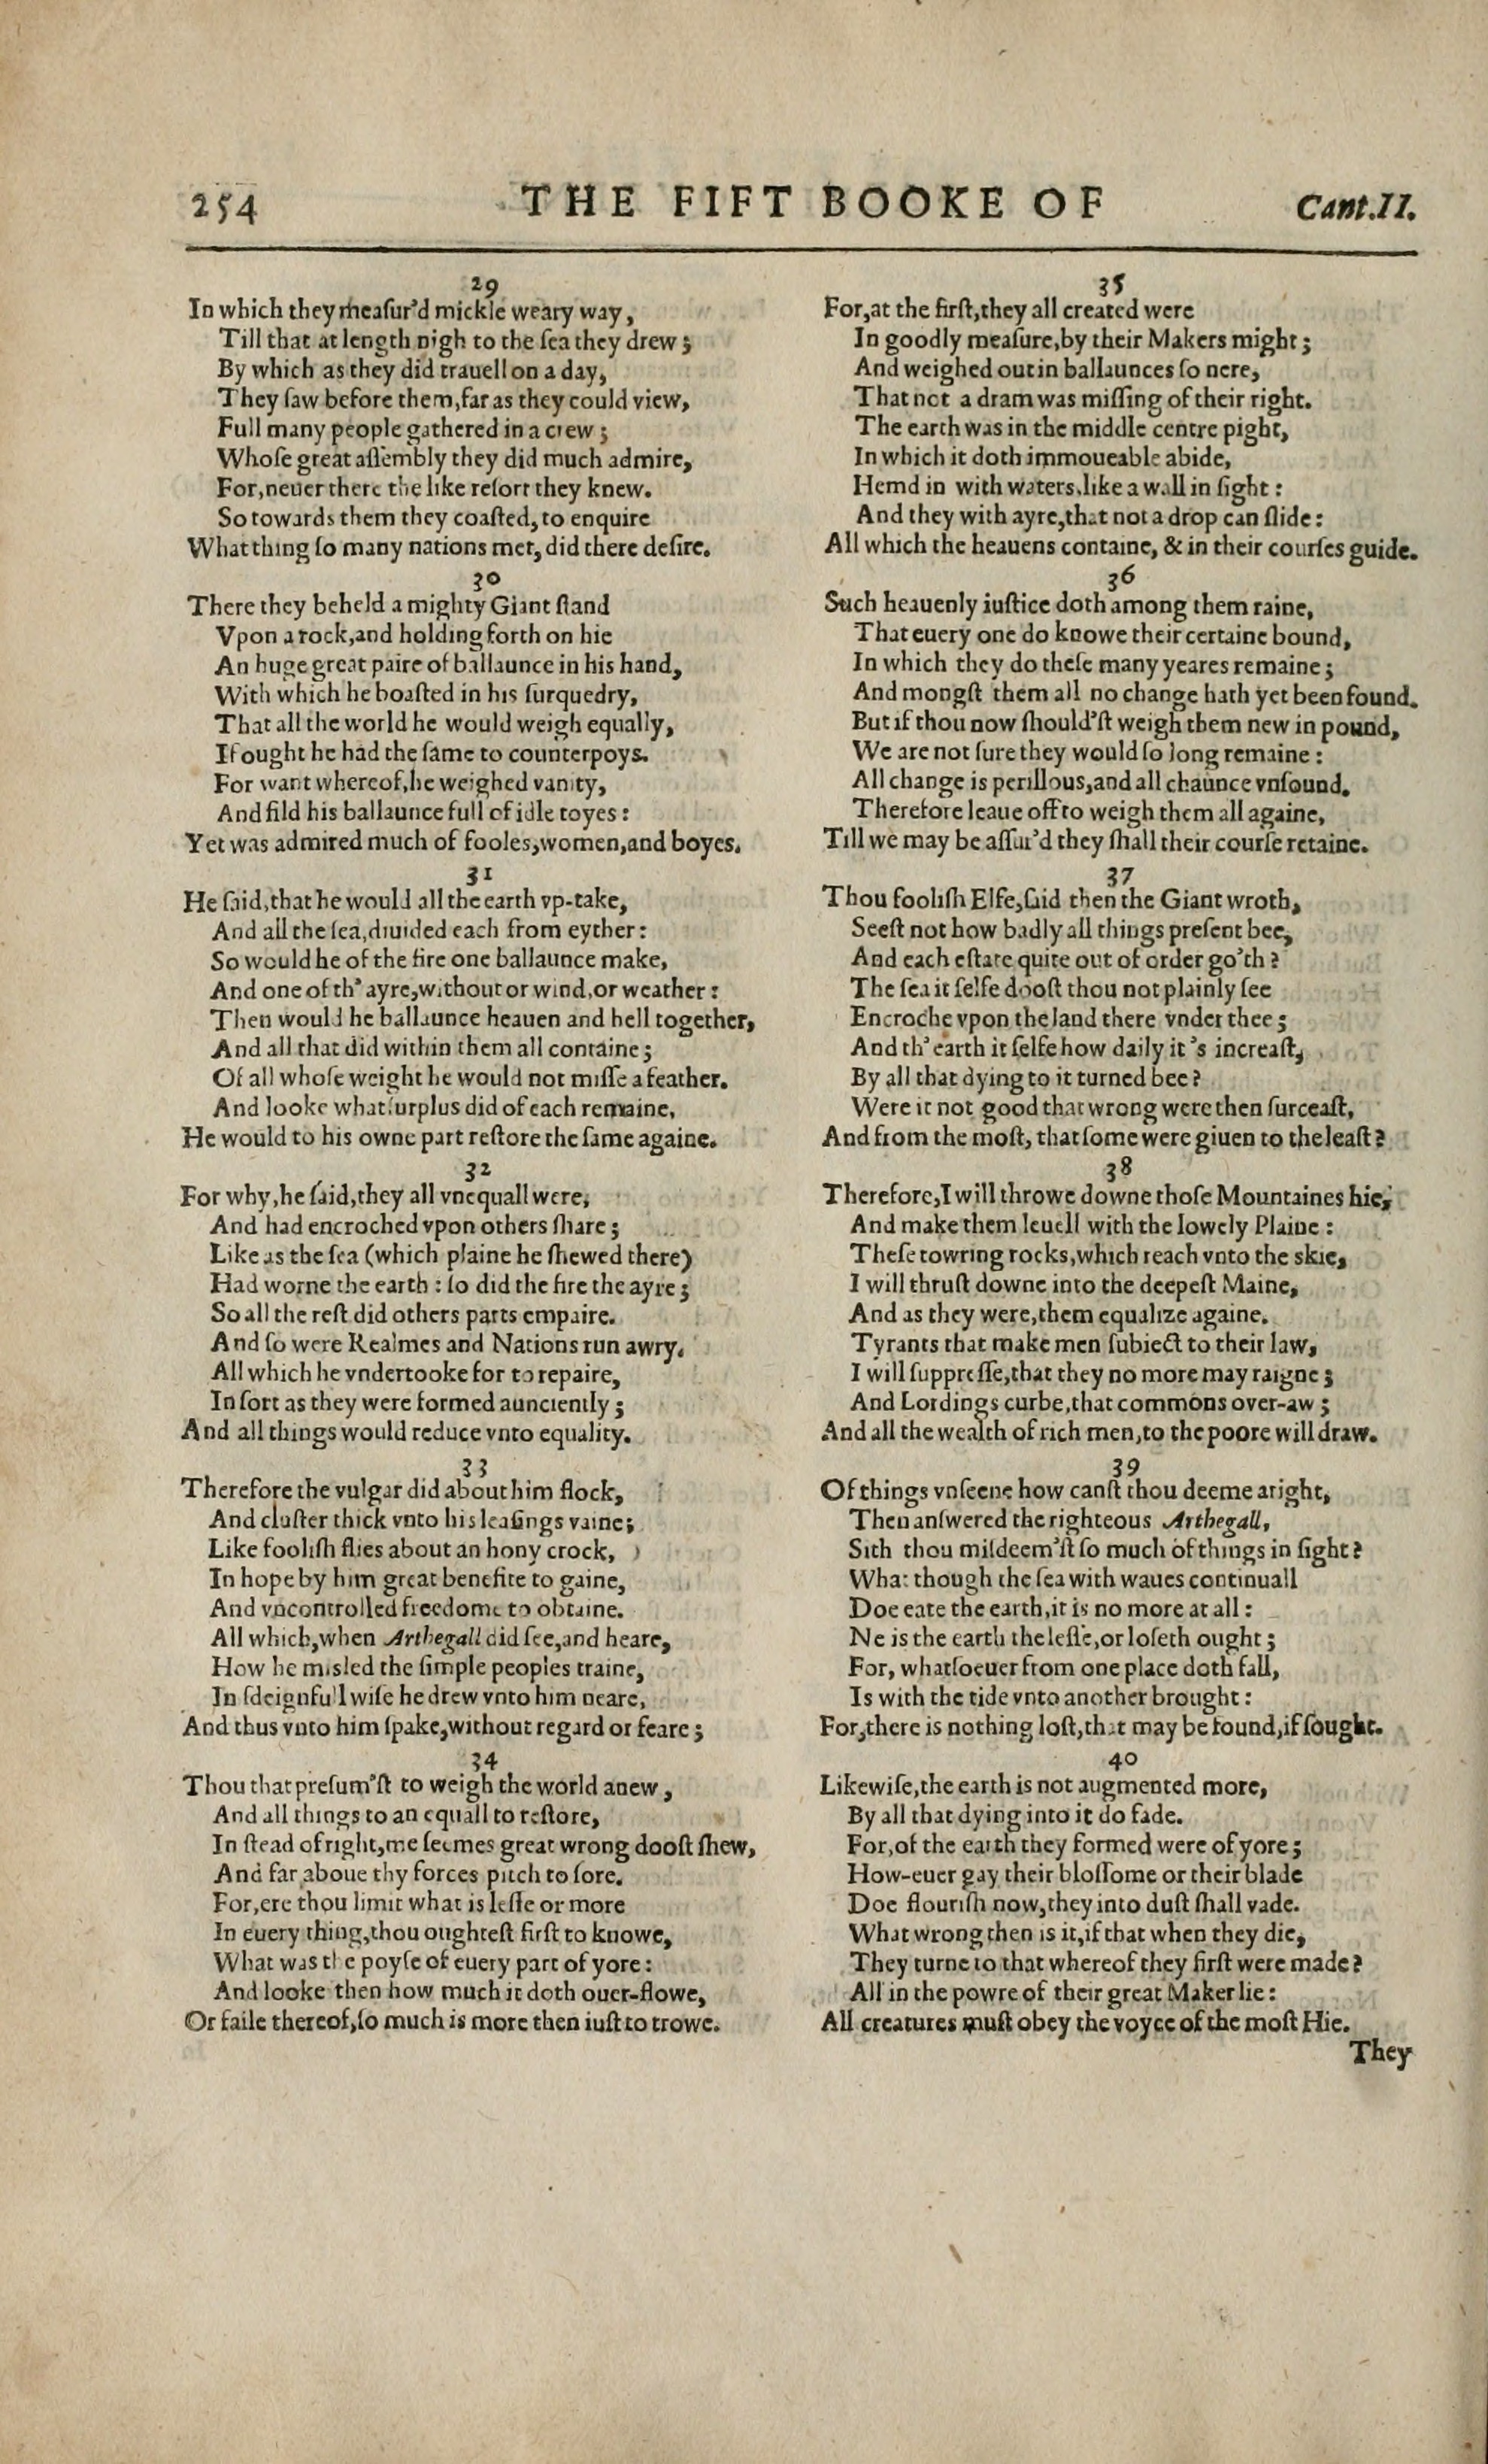 254 THE FIFT BOOKE OF Cant.II.
29
In which they meaſur'd mickle weary way,
Till that at length nigh to the ſea they drew;
By which as they did trauell on a day,
They ſaw before them, far as they could view,
Full many people gathered in a crew;
Whoſe great aſſembly they did much admire,
For, neuer there the like reſort they knew.
So towards them they coaſted, to enquire
What thing ſo many nations met, did there deſire.
30
There they beheld a mighty Giant ſtand
Vpon a rock, and holding forth on hie
An huge great paire of ballaunce in his hand,
With which he boaſted in his ſurquedry,
That all the world he would weigh equally,
If ought he had the ſame to counterpoys.
For want whereof, he weighed vanity,
And fild his ballaunce full of idle toyes:
Yet was admired much of fooles, women, and boyes.
31
He ſaid, that he would all the earth vp-take,
And all the ſea, diuided each from eyther:
So would he of the fire one ballaunce make,
And one of th' ayre, without or wind, or weather:
Then would he ballaunce heauen and hell together,
And all that did within them all containe;
Of all whoſe weight he would not miſſe a feather.
And looke what ſurplus did of each remaine,
He would to his owne part reſtore the ſame againe.
32
For why, he ſaid, they all vnequall were,
And had encroched vpon others ſhare;
Like as the ſea (which plaine he ſhewed there)
Had worne the earth: ſo did the fire the ayre;
So all the reſt did others parts empaire.
And ſo were Realmes and Nations run awry.
All which he vndertooke for to repaire,
In ſort as they were formed aunciently;
And all things would reduce vnto equality.
33
Therefore the vulgar did about him flock,
And cluſter thick vnto his leaſings vaine;
Like fooliſh flies about an hony crock,
In hope by him great benefite to gaine,
And vncontrolled freedome to obtaine.
All which, when Arthegall did ſee, and heare,
How he misled the ſimple peoples traine,
In ſdeignfull wiſe he drew vnto him neare,
And thus vnto him ſpake, without regard or feare;
34
Thou that preſum'ſt to weigh the world anew,
And all things to an equall to reſtore,
In ſtead of right, me ſeemes great wrong dooſt ſhew,
And far aboue thy forces pitch to ſore.
For, ere thou limit what is leſſe or more
In euery thing, thou oughteſt firſt to knowe,
What was the poyſe of euery part of yore:
And looke then how much it doth ouer-flowe,
Or faile thereof, ſo much is more then iuſt to trowe.
35
For, at the firſt, they all created were
In goodly meaſure, by their Makers might;
And weighed out in ballaunces ſo nere,
That not a dram was miſſing of their right.
The earth was in the middle centre pight,
In which it doth immoueable abide,
Hemd in with waters, like a wall in ſight:
And they with ayre, that not a drop can ſlide:
All which the heauens containe, & in their courſes guide.
36
Such heauenly iuſtice doth among them raine,
That euery one do knowe their certaine bound,
In which they do theſe many yeares remaine;
And mongſt them all no change hath yet been found.
But if thou now ſhould'ſt weigh them new in pound,
We are not ſure they would ſo long remaine:
All change is perillous, and all chaunce vnſound.
Therefore leaue off to weigh them all againe,
Till we may be aſſur'd they ſhall their courſe retaine.
37
Thou fooliſh Elfe, ſaid then the Giant wroth,
Seeſt not how badly all things preſent bee,
And each eſtate quite out of order go'th?
The ſea it ſelfe dooſt thou not plainly ſee
Encroche vpon the land there vnder thee;
And th' earth it ſelfe how daily it 's increaſt,
By all that dying to it turned bee?
Were it not good that wrong were then ſurceaſt,
And from the moſt, that ſome were giuen to the leaſt?
38
Therefore, I will throwe downe thoſe Mountaines hie,
And make them leuell with the lowely Plaine:
Theſe towring rocks, which reach vnto the skie,
I will thruſt downe into the deepeſt Maine,
And as they were, them equalize againe.
Tyrants that make men ſubiect to their law,
I will ſuppreſſe, that they no more may raigne;
And Lordings curbe, that commons over-aw;
And all the wealth of rich men, to the poore will draw.
39
Of things vnſeene how canſt thou deeme aright,
Then anſwered the righteous Arthegall,
Sith thou miſdeem'ſt ſo much of things in ſight?
What though the ſea with waues continuall
Doe eate the earth, it is no more at all:
Ne is the earth the leſſe, or loſeth ought;
For, whatſoeuer from one place doth fall,
Is with the tide vnto another brought:
For, there is nothing loſt, that may be found, if ſought.
40
Likewiſe, the earth is not augmented more,
By all that dying into it do fade.
For, of the earth they formed were of yore;
How-euer gay their bloſſome or their blade
Doe flouriſh now, they into duſt ſhall vade.
What wrong then is it, if that when they die,
They turne to that whereof they firſt were made?
All in the powre of their great Maker lie:
All creatures muſt obey the voyce of the moſt Hie.
They